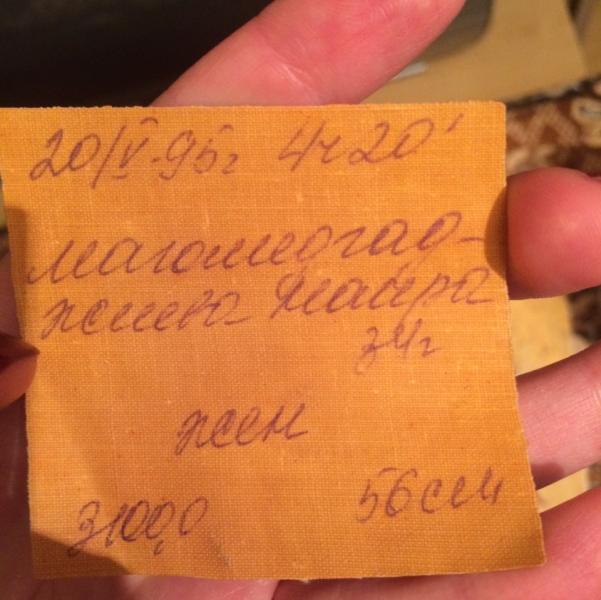 20/V-95г 4ч20'
Магомедгад-
жиева Наира
34г
жен
3100,0
56см